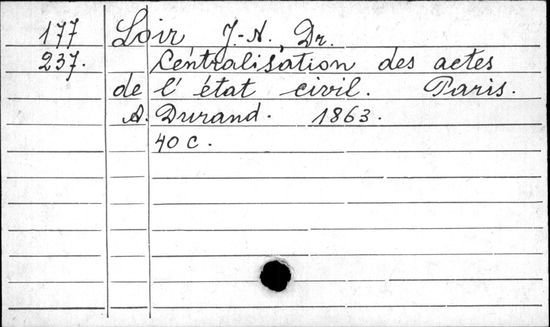 177 Loir J.-A. Dr.
237. Centralisation des actes
de l'état civil. Paris.
A. Durand. 1863.
40 c.